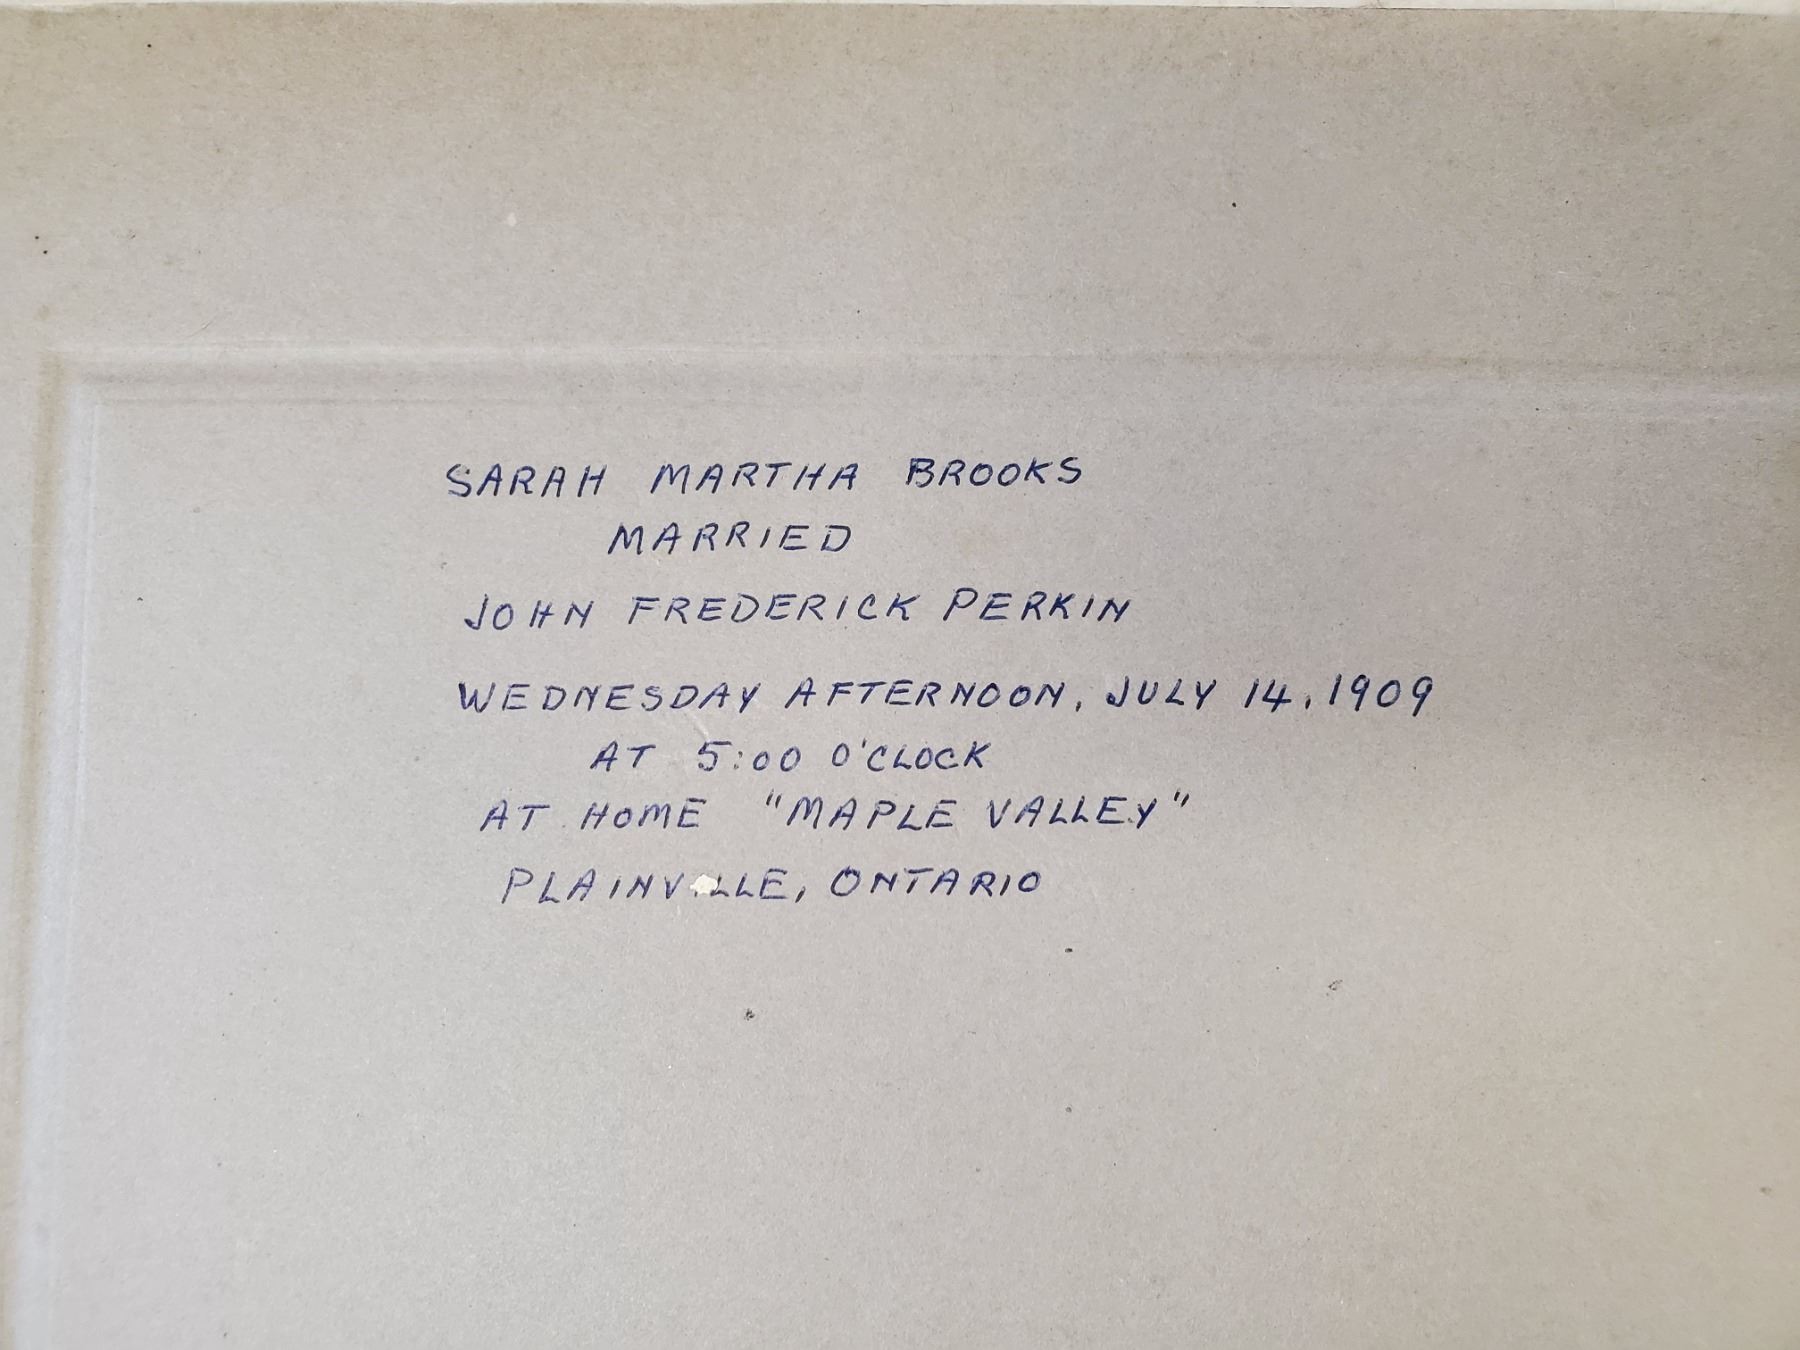 SARAH MARTHA BROOKS
MARRIED
JOHN FREDERICK PERKIN
WEDNESDAY AFTERNOON, JULY 14, 1909
AT 5:00 O'CLOCK
AT HOME "MAPLE VALLEY"
PLAINVILLE, ONTARIO